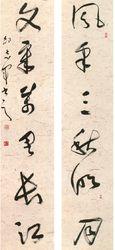 風采三秋明月
文章萬里長江